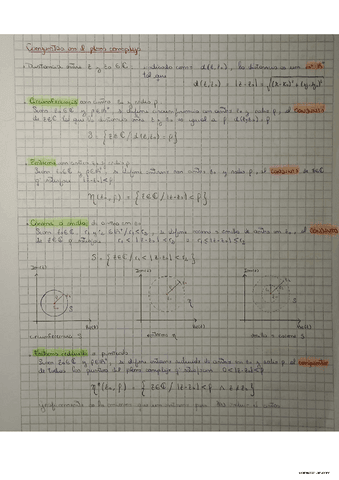 Conjuntos en el plano complejo
Distancia entre z y z₀ ∈ ℂ: definido como d(z,z₀), la distancia es un nº ℝ⁺
tal que
d(z,z₀) = |z-z₀| = √(x-x₀)² + (y-y₀)²
Circunferencia con centro z₀ y radio ρ
Sean z₀∈ℂ y ρ∈ℝ⁺, se define circunferencia con centro z₀ y radio ρ, al conjunto
de z∈ℂ tal que la distancia entre z y z₀ es igual a ρ. d(z,z₀)=ρ
S = {z∈ℂ / d(z,z₀) = ρ}
Entorno con centro z₀ y radio ρ
Sean z₀∈ℂ y ρ∈ℝ⁺, se define entorno con centro z₀ y radio ρ, al conjunto de z∈ℂ
y |z-z₀|<ρ
η(z₀,ρ) = {z∈ℂ / |z-z₀|<ρ}
Corona o anillo de centro en z₀
Sean z₀∈ℂ, r₁ y r₂ ∈ℝ⁺/r₁<r₂, se define corona o anillo de centro en z₀, al conjunto
de z∈ℂ r₁<|z-z₀|<r₂ r₁≤|z-z₀|≤r₂
S = {z∈ℂ / r₁<|z-z₀|<r₂}
Im(z) Im(z) Im(z)
S η S
Re(z) Re(z) Re(z)
circunferencia S entorno η anillo o corona S
Entorno reducido o punteado
Sean z₀∈ℂ y ρ∈ℝ⁺, se define entorno reducido de centro en z₀ y radio ρ al conjunto
de todos los puntos del plano complejo y 0<|z-z₀|<ρ
η*(z₀,ρ) = {z∈ℂ / |z-z₀|<ρ ∧ z≠z₀}
es lo mismo que un entorno pero el centro